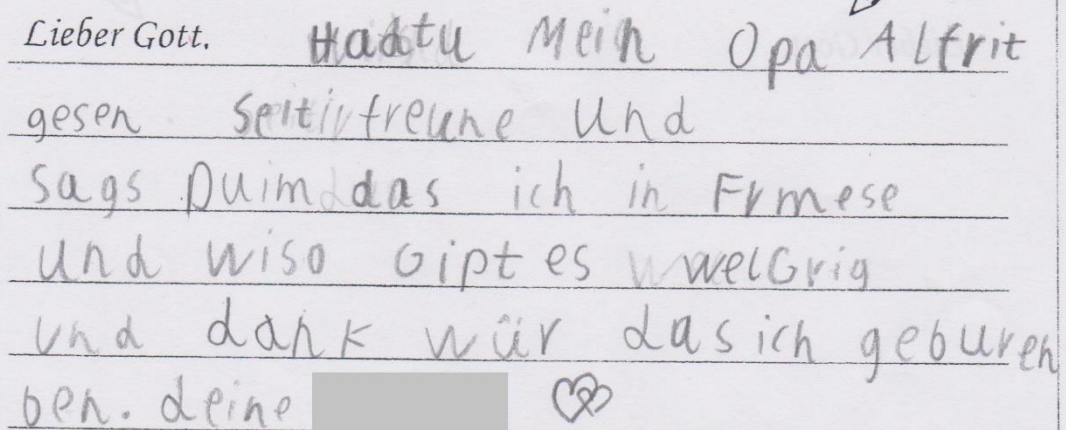 Lieber Gott. Hadtu Mein Opa Alfrit
gesen Seit ir freune Und
sags Duim das ich in Frmese
und wiso Gipt es welGrig
und dank wür das ich geburen
ben. deine